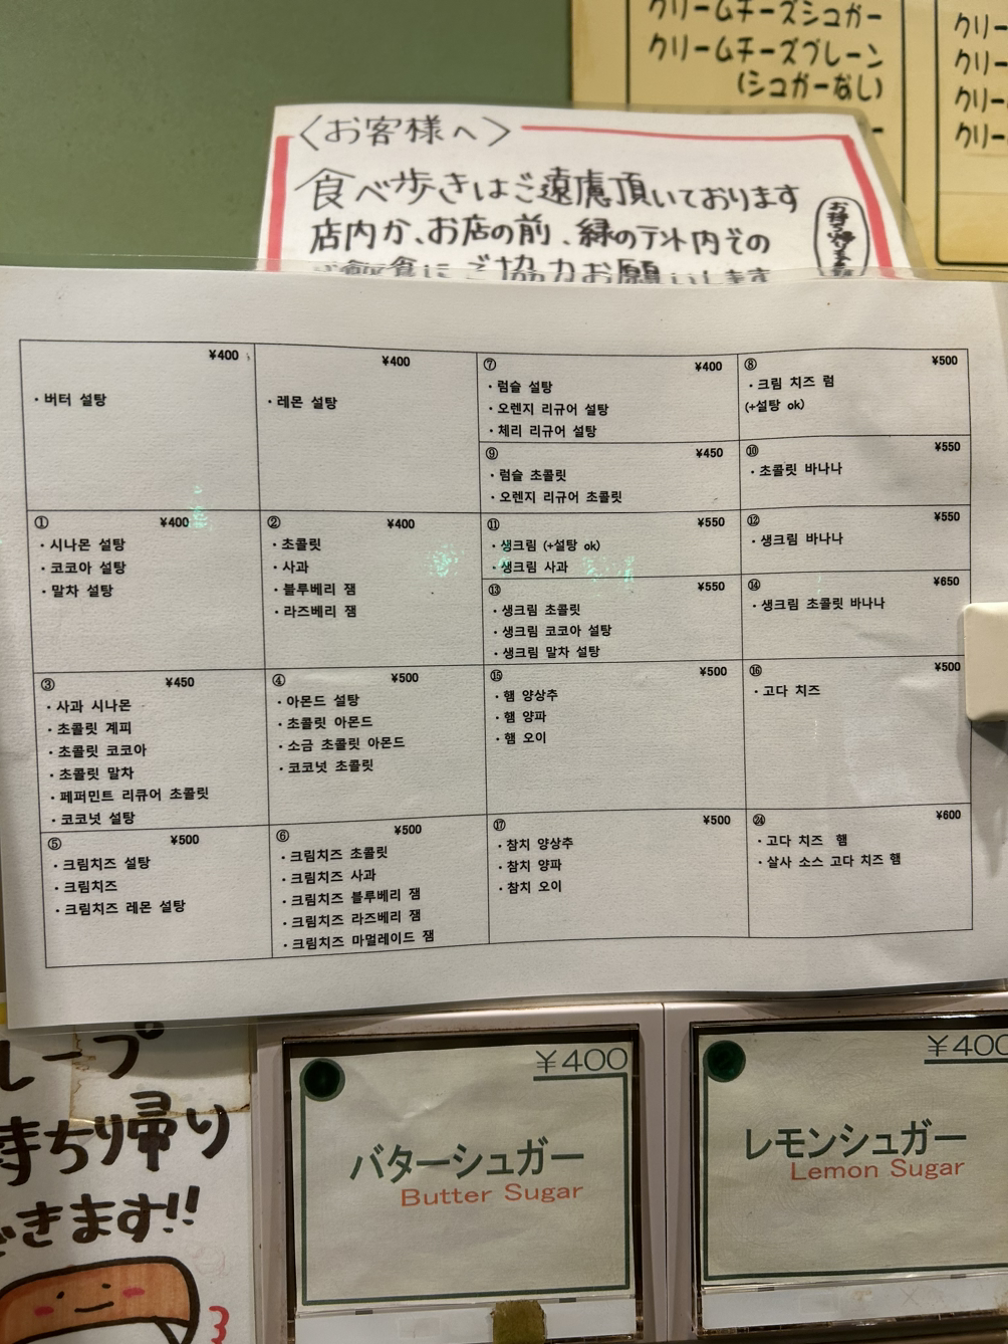 クリームチーズシュガー
クリームチーズプレーン
(シュガーなし)
クリー
クリー
クリー
クリー
〈お客様へ〉
食べ歩きはご遠慮頂いております
店内か、お店の前、緑のテント内での
ご飲食にご協力お願いします
¥400
・버터 설탕
¥400
・레몬 설탕
⑦ ¥400
・럼슬 설탕
・오렌지 리규어 설탕
・체리 리규어 설탕
⑧ ¥500
・크림 치즈 럼
(+설탕 ok)
⑨ ¥450
・럼슬 초콜릿
・오렌지 리규어 초콜릿
⑩ ¥550
・초콜릿 바나나
① ¥400
・시나몬 설탕
・코코아 설탕
・말차 설탕
② ¥400
・초콜릿
・사과
・블루베리 잼
・라즈베리 잼
⑪ ¥550
・생크림 (+설탕 ok)
・생크림 사과
⑫ ¥550
・생크림 바나나
⑬ ¥550
・생크림 초콜릿
・생크림 코코아 설탕
・생크림 말차 설탕
⑭ ¥650
・생크림 초콜릿 바나나
③ ¥450
・사과 시나몬
・초콜릿 계피
・초콜릿 코코아
・초콜릿 말차
・페퍼민트 리큐어 초콜릿
・코코넛 설탕
④ ¥500
・아몬드 설탕
・초콜릿 아몬드
・소금 초콜릿 아몬드
・코코넛 초콜릿
⑮ ¥500
・햄 양상추
・햄 양파
・햄 오이
⑯ ¥500
・고다 치즈
⑤ ¥500
・크림치즈 설탕
・크림치즈
・크림치즈 레몬 설탕
⑥ ¥500
・크림치즈 초콜릿
・크림치즈 사과
・크림치즈 블루베리 잼
・크림치즈 라즈베리 잼
・크림치즈 마멀레이드 잼
⑰ ¥500
・참치 양상추
・참치 양파
・참치 오이
㉔ ¥600
・고다 치즈 햄
・살사 소스 고다 치즈 햄
レープ
持ち帰り
できます!!
3
¥400
バターシュガー
Butter Sugar
¥400
レモンシュガー
Lemon Sugar